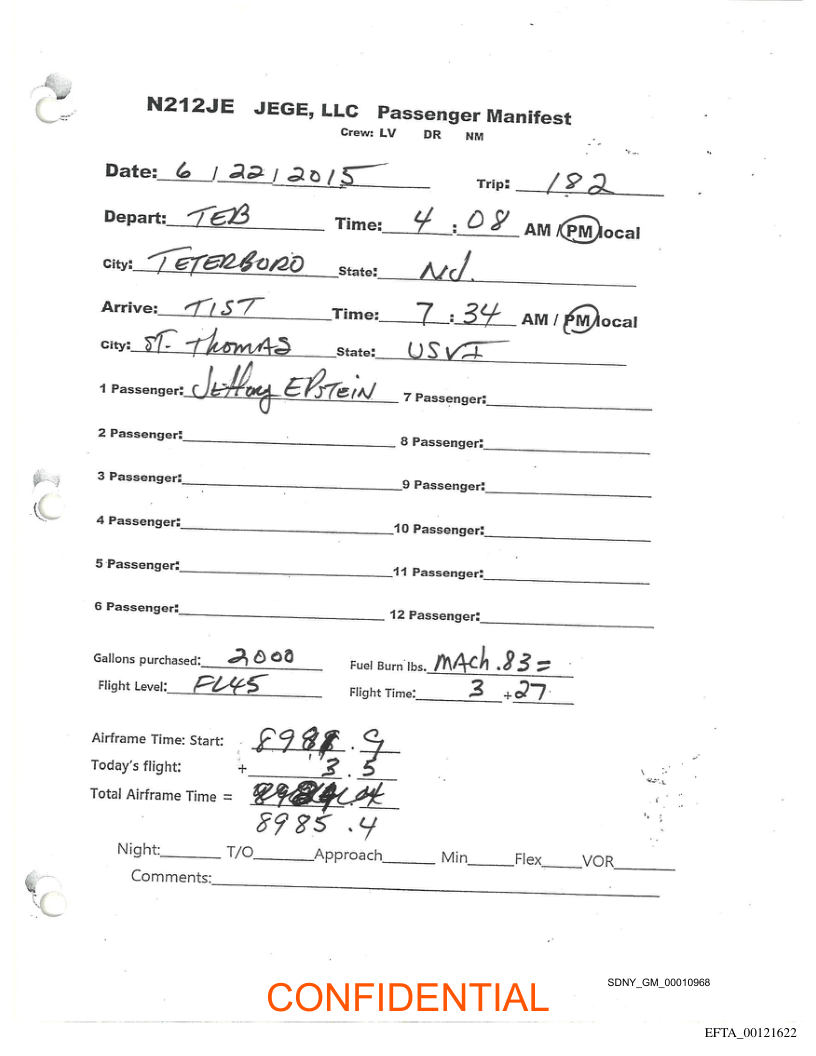 N212JE JEGE, LLC Passenger Manifest
Crew: LV DR NM
Date: 6 / 22 / 2015 Trip: 182
Depart: TEB Time: 4 : 08 AM / PM local
City: TETERBORO State: NJ.
Arrive: TIST Time: 7 : 34 AM / PM local
City: ST. ThomAS State: USVI
1 Passenger: Jeffrey EPSTEIN 7 Passenger:
2 Passenger: 8 Passenger:
3 Passenger: 9 Passenger:
4 Passenger: 10 Passenger:
5 Passenger: 11 Passenger:
6 Passenger: 12 Passenger:
Gallons purchased: 2000 Fuel Burn lbs. MACh .83 =
Flight Level: FL45 Flight Time: 3 + 27
Airframe Time: Start: 8981 . 9
Today's flight: + 3 . 5
Total Airframe Time =
8985 .4
Night: T/O Approach Min Flex VOR
Comments:
SDNY_GM_00010968
CONFIDENTIAL
EFTA_00121622